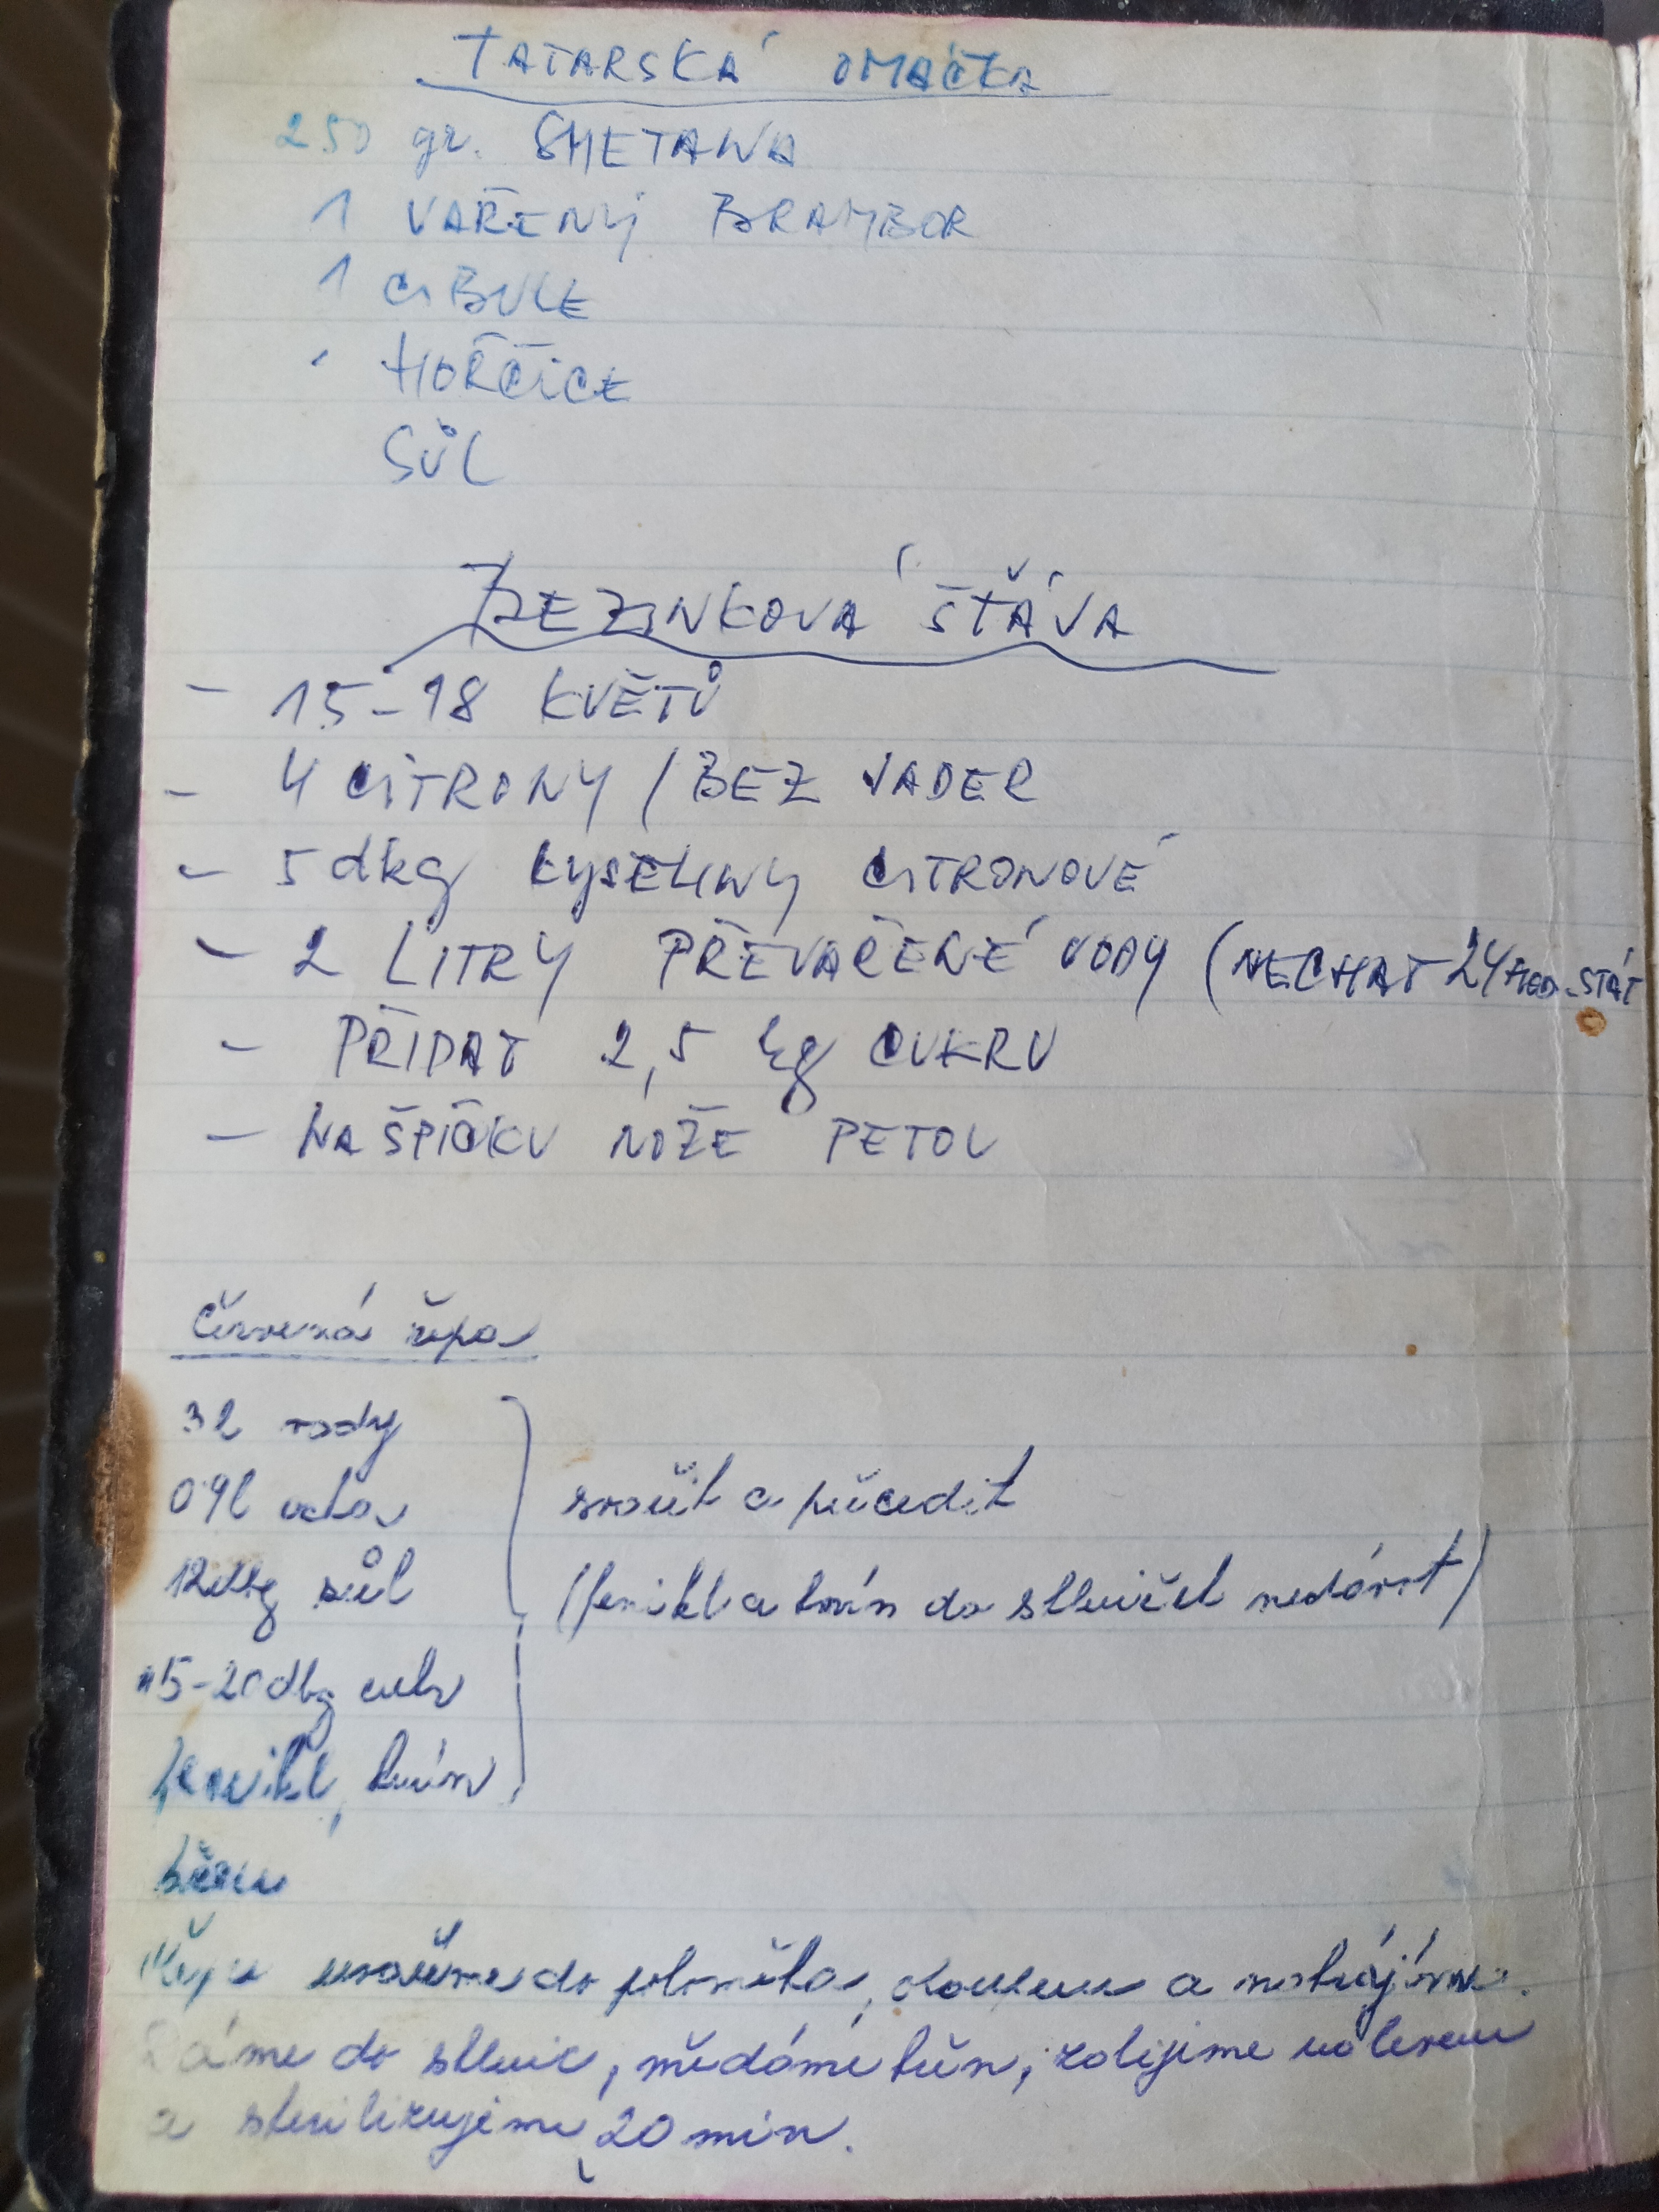 TATARSKÁ OMÁČKA
250 gr. SMETANA
1 VAŘENÝ BRAMBOR
1 CIBULE
HOŘČICE
SŮL
BEZINKOVÁ ŠŤÁVA
- 15-18 KVĚTŮ
- 4 CITRONY / BEZ JADER
- 5 dkg KYSELINY CITRONOVÉ
- 2 LITRY PŘEVAŘENÉ VODY (NECHAT 24 HOD. STÁT
- PŘIDAT 2,5 kg CUKRU
- NA ŠPIČKU NOŽE PETOL
Červená řepa
3 l vody
0,9 l octa
12 dkg sůl
15-20 dkg cukr
fenikl, kmín
svařit a přecedit
(fenikl a kmín do skleniček nedávat)
křen
Řepu uvaříme do poloměka, oloupeme a nakrájíme.
Dáme do sklenic, přidáme křen, zalijeme nálevem
a sterilizujeme 20 min.